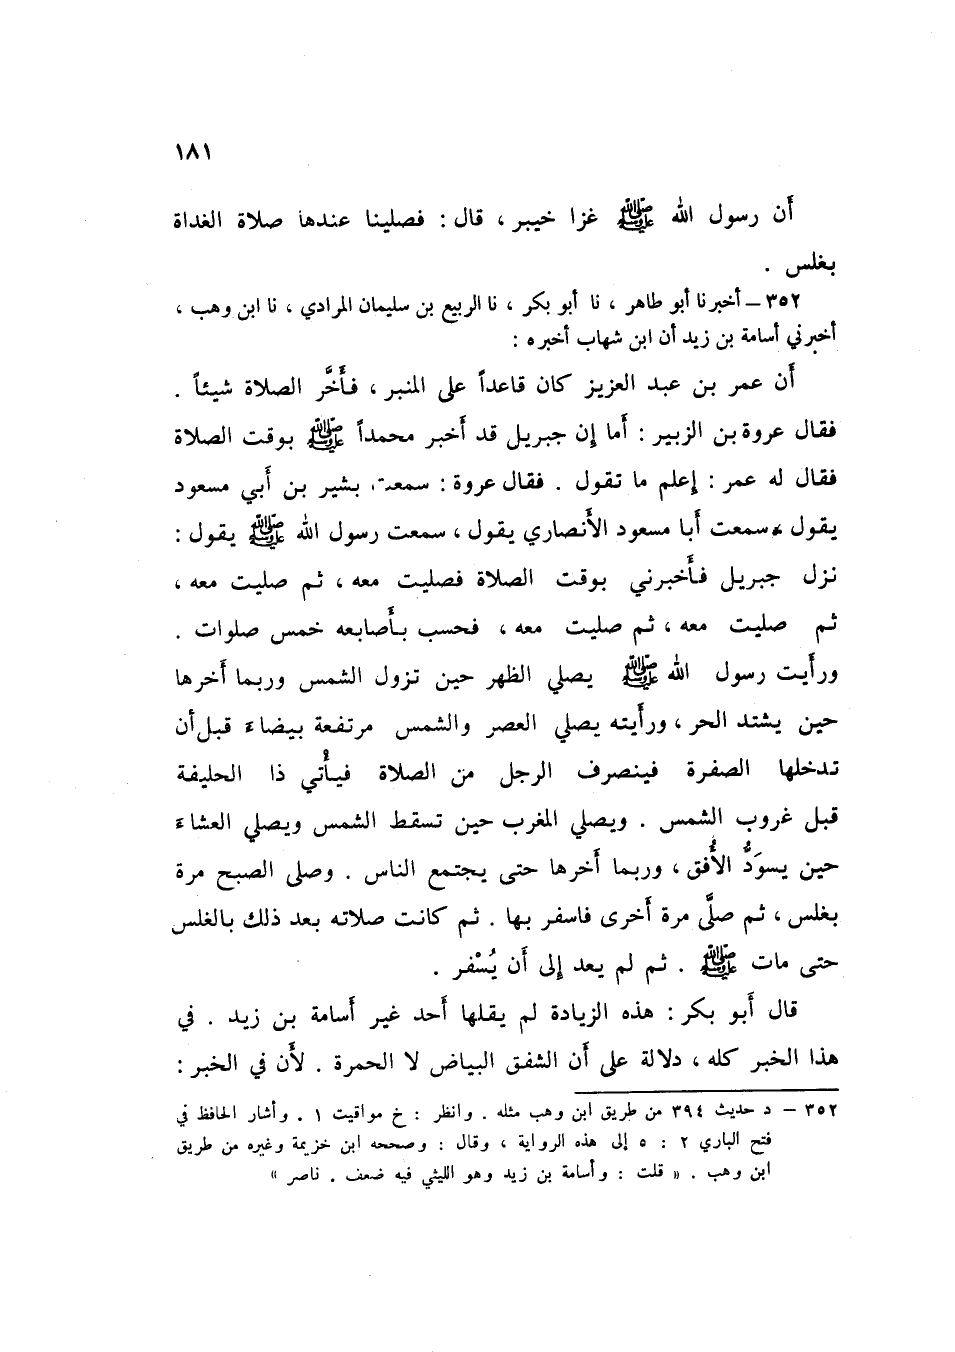 ١٨١
أن رسول الله ﷺ غزا خيبر ، قال : فصلينا عندها صلاة الغداة
بغلس .
٣٥٢ – أخبرنا أبو طاهر ، نا أبو بكر ، نا الربيع بن سليمان المرادي ، نا ابن وهب ،
أخبرني أسامة بن زيد أن ابن شهاب أخبره :
أن عمر بن عبد العزيز كان قاعداً على المنبر ، فأَخَّر الصلاة شيئاً .
فقال عروة بن الزبير : أما إن جبريل قد أخبر محمداً ﷺ بوقت الصلاة
فقال له عمر : إعلم ما تقول . فقال عروة : سمعت بشير بن أبي مسعود
يقول سمعت أبا مسعود الأنصاري يقول ، سمعت رسول الله ﷺ يقول :
نزل جبريل فأخبرني بوقت الصلاة فصليت معه ، ثم صليت معه ،
ثم صليت معه ، ثم صليت معه ، فحسب بأصابعه خمس صلوات .
ورأيت رسول الله ﷺ يصلي الظهر حين تزول الشمس وربما أخرها
حين يشتد الحر ، ورأيته يصلي العصر والشمس مرتفعة بيضاء قبل أن
تدخلها الصفرة فينصرف الرجل من الصلاة فيأُتي ذا الحليفة
قبل غروب الشمس . ويصلي المغرب حين تسقط الشمس ويصلي العشاء
حين يسوَدُّ الأُفق ، وربما أخرها حتى يجتمع الناس . وصلى الصبح مرة
بغلس ، ثم صلَّى مرة أخرى فاسفر بها . ثم كانت صلاته بعد ذلك بالغلس
حتى مات ﷺ . ثم لم يعد إلى أن يُسْفر .
قال أبو بكر : هذه الزيادة لم يقلها أحد غير أسامة بن زيد . في
هذا الخبر كله ، دلالة على أن الشفق البياض لا الحمرة . لأن في الخبر :
٣٥٢ – د حديث ٣٩٤ من طريق ابن وهب مثله . وانظر : خ مواقيت ١ . وأشار الحافظ في
فتح الباري ٢ : ٥ إلى هذه الرواية ، وقال : وصححه ابن خزيمة وغيره من طريق
ابن وهب . « قلت : وأسامة بن زيد وهو الليثي فيه ضعف . ناصر »